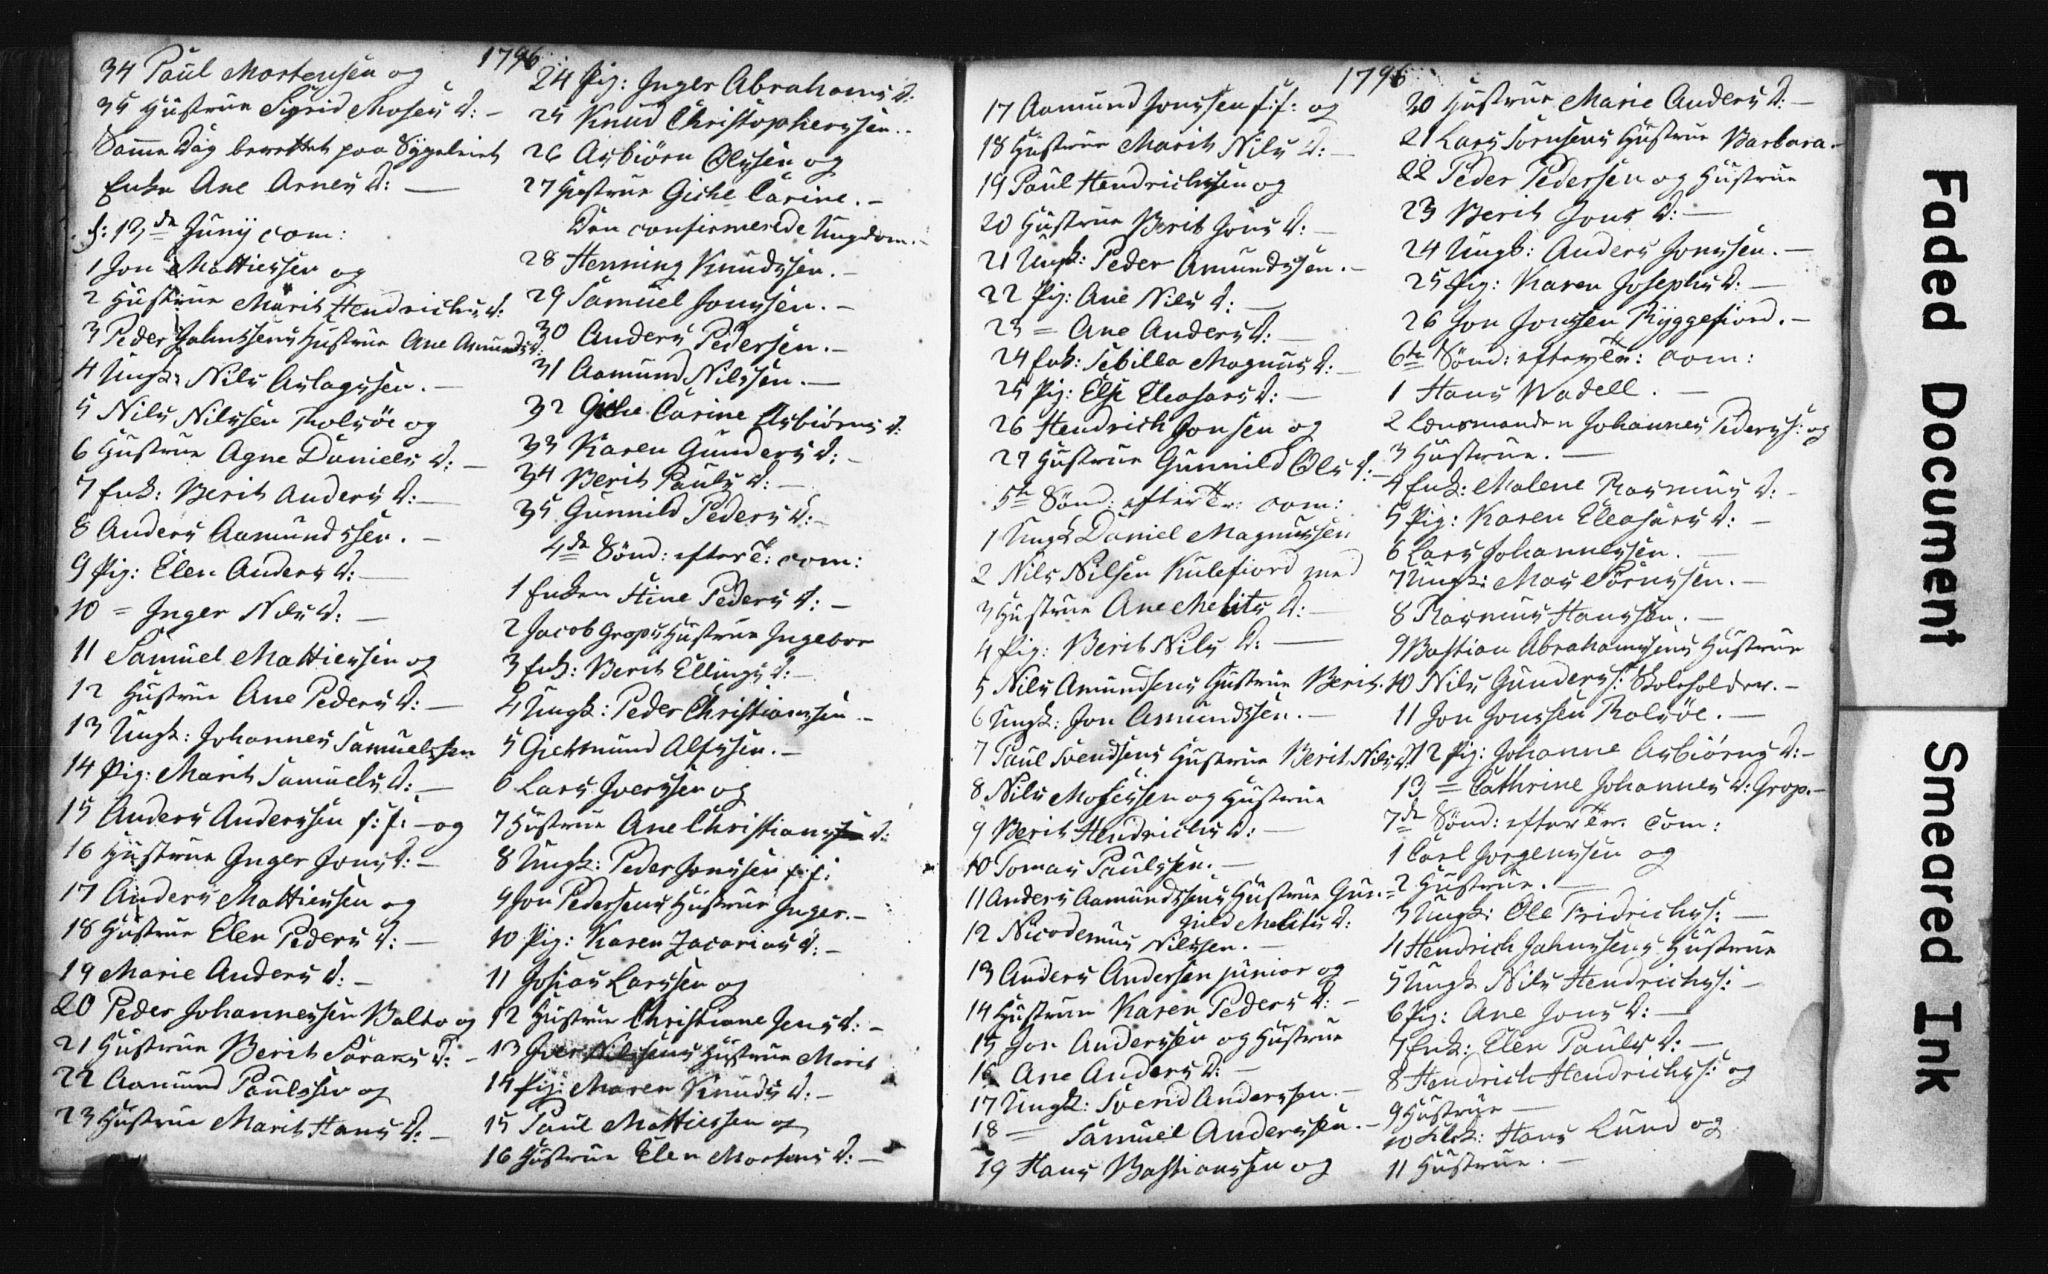 1796
34 Paul Mortensen og
35 Hustrue Sigrid Moses D: -
Samme Dag berettet paa Sygeleiet
Enke Ane Arnes D: —
d: 12de Junij com:
1 Jon Mattiessen og
2 Hustrue Marit Hendrichs D:
3 Peder Jahnssens Hustrue Ane Amunds D:
4 Ungk: Nils Aslagssen. —
5 Nils Nilssen Rolsöe og
6 Hustrue Agne Daniels D: —
7 Enk: Berit Anders D: —
8 Anders Aamundssen. —
9 Pig: Elen Anders D: —
10 = Inger Nils D: —
11 Samuel Mattiessen og
12 Hustrue Ane Peders D: —
13 Ungk: Johannes Samuelssen
14 Pig: Marit Samuels D: —
15 Anders Anderssen f: f: - og
16 Hustrue Inger Jons D: —
17 Anders Mattiessen og
18 Hustrue Elen Peders D: —
19 Marie Anders D: —
20 Peder Johannessen Balto og
21 Hustrue Berit Sarakes D: -
22 Aamund Paulssen og
23 Hustrue Marit Hans D: —
24 Pig: Inger Abrahams D:
25 Knud Christopherssen. -
26 Asbiörn Olssen og
27 Hustrue Giche Carine. -
Den confirmerede Ungdom. -
28 Henning Knudssen. —
29 Samuel Jonssen. —
30 Anders Pedersen. —
31 Aamund Nilssen. —
32 Giche Carine Asbiörns D:
33 Karen Gunders D: -
34 Berit Pauls D: —
35 Gunnild Peders D: -
4de Sönd: efter T: com:
1 Enken Stine Peders D: —
2 Jacob Grops Hustrue Ingebor
3 Enk: Berit Ellings D: -
4 Ungk: Peder Christianssen -
5 Giertmund Alfssen. —
6 Lars Iverssen og
7 Hustrue Ane Christians D:
8 Ungk: Peder Jonssen f: f:
9 Jon Pedersens Hustrue Inger. —
10 Pig: Karen Zacarias D: —
11 Josias Larssen og
12 Hustrue Christiane Jens D: -
13 Iver Nilssens Hustrue Marit
14 Pig: Maren Knuds D: —
15 Paul Mattiessen og
16 Hustrue Elen Mortens D: —
1796
17 Aamund Jonssen f: f: og
18 Hustrue Marit Nils D: —
19 Paul Hendrichssen og
20 Hustrue Berit Jons D: —
21 Ungk: Peder Amundssen. —
22 Pig: Ane Nils D: —
23 = Ane Anders D: —
24 Enk: Sebilla Magnus D: —
25 Pig: Else Eleasars D: —
26 Hendrich Jonsen og
27 Hustrue Gunnild Ols D: —
5te Sönd: efter Tr: com:
1 Ungk Daniel Magnussen
2 Nils Nilsen Kulefiord med
3 Hustrue Ane Melits D: —
4 Pig: Berit Nils D: —
5 Nils Amundsens Hustrue Berit.
6 Ungk: Jon Amundssen. —
7 Paul Svendsens Hustrue Berit Nils D:
8 Nils Mosessen og Hustrue
9 Berit Hendrichs D: —
10 Tomas Paulssen. —
11 Anders Aamundssens Hustrue Gun=
nild Melits D:
12 Nicodemus Nilssen. —
13 Anders Andersen junior og
14 Hustrue Karen Peders D: -
15 Jon Anderssen og Hustrue
16 Ane Anders D: —
17 Ungk: Sverid Anderssen. —
18 = Samuel Anderssen. —
19 Hans Bastianssen og
20 Hustrue Marie Anders D: —
21 Lars Törnsens Hustrue Barbara. -
22 Peder Pedersen og Hustrue
23 Berit Jons D: —
24 Ungk: Anders Jonssen. —
25 Pig: Karen Josephs D: —
26 Jon Jonssen Ryggefiord. —
6te Sönd: efter Tr: com:
1 Hans Wadell. —
2 Lensmanden Johannes Peders: og
3 Hustrue. —
4 Enk: Malene Rasmus D: -
5 Pig: Karen Eleasars D: —
6 Lars Johannessen. —
7 Ungk: Mas Törnssen. —
8 Rasmus Hanssen. —
9 Bastian Abrahamssens Hustrue
10 Nils Gunders: Skoleholder. —
11 Jon Jonssen Rolsöe. —
12 Pig: Johanne Asbiörns D: -
13 = Cathrine Johannes D: Grop. -
7de Sönd: efter Tr. com:
1 Carl Jorgenssen og
2 Hustrue. —
3 Ungk: Ole Fridrichs: —
4 Hendrich Jahnssens Hustrue
5 Ungk Nils Hendrichs: —
6 Pig: Ane Jons D: —
7 Enk: Elen Pauls D: —
8 Hendrich Hendrichs: og
9 Hustrue —
10 Hans Lund og
11 Hustrue. —
Faded Document
Smeared Ink